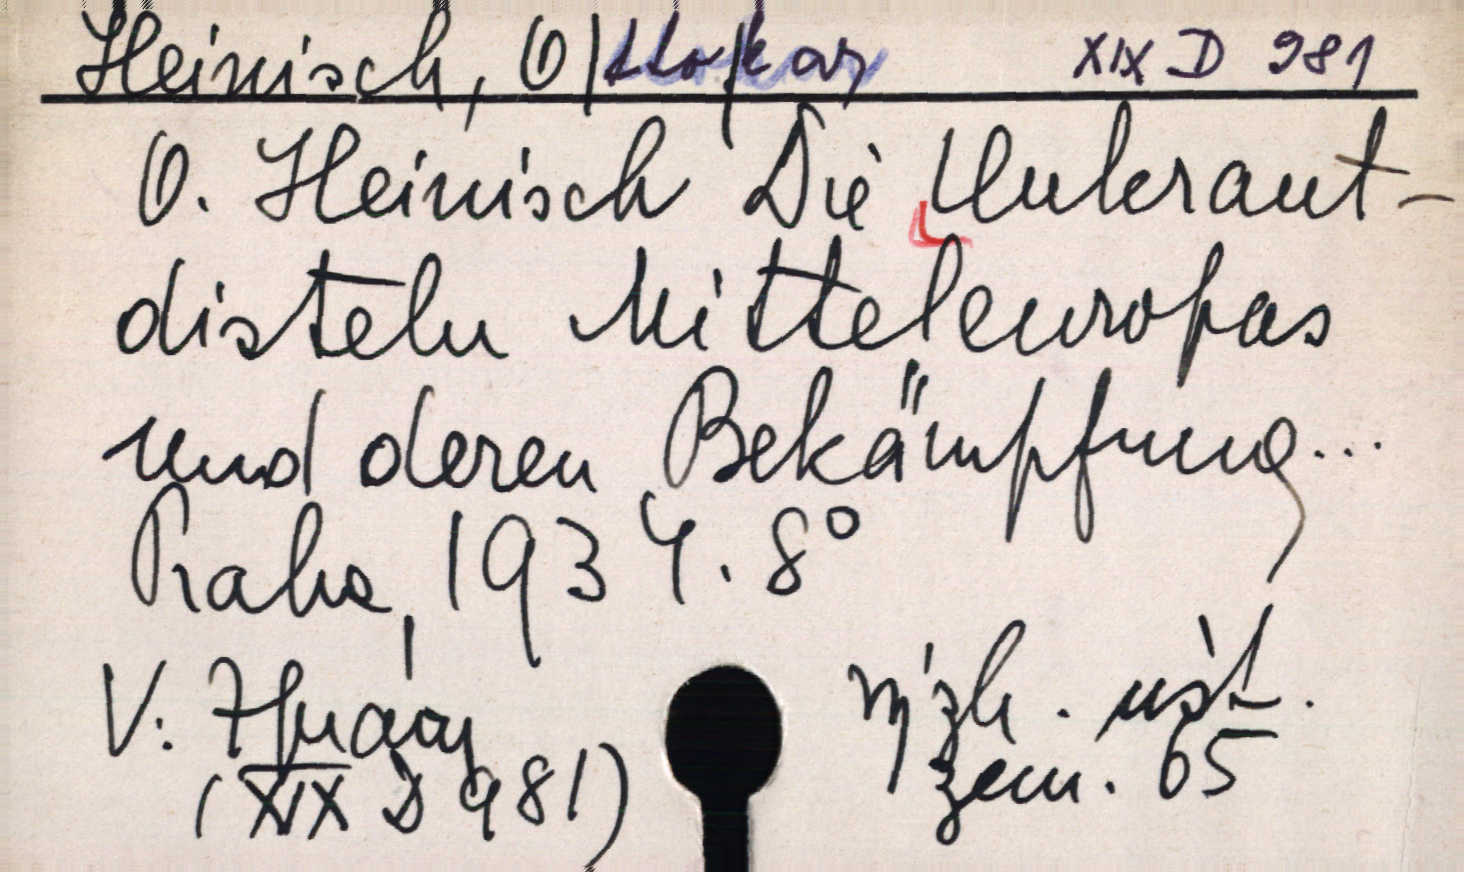 Heinisch, O/ttokar XIX D 981
O. Heinisch Die Unkraut-
disteln Mitteleuropas
und deren Bekämpfung...
Praha, 1934. 8°
V: Zprávy výzk. úst.
(XIX D 981) zem. 65